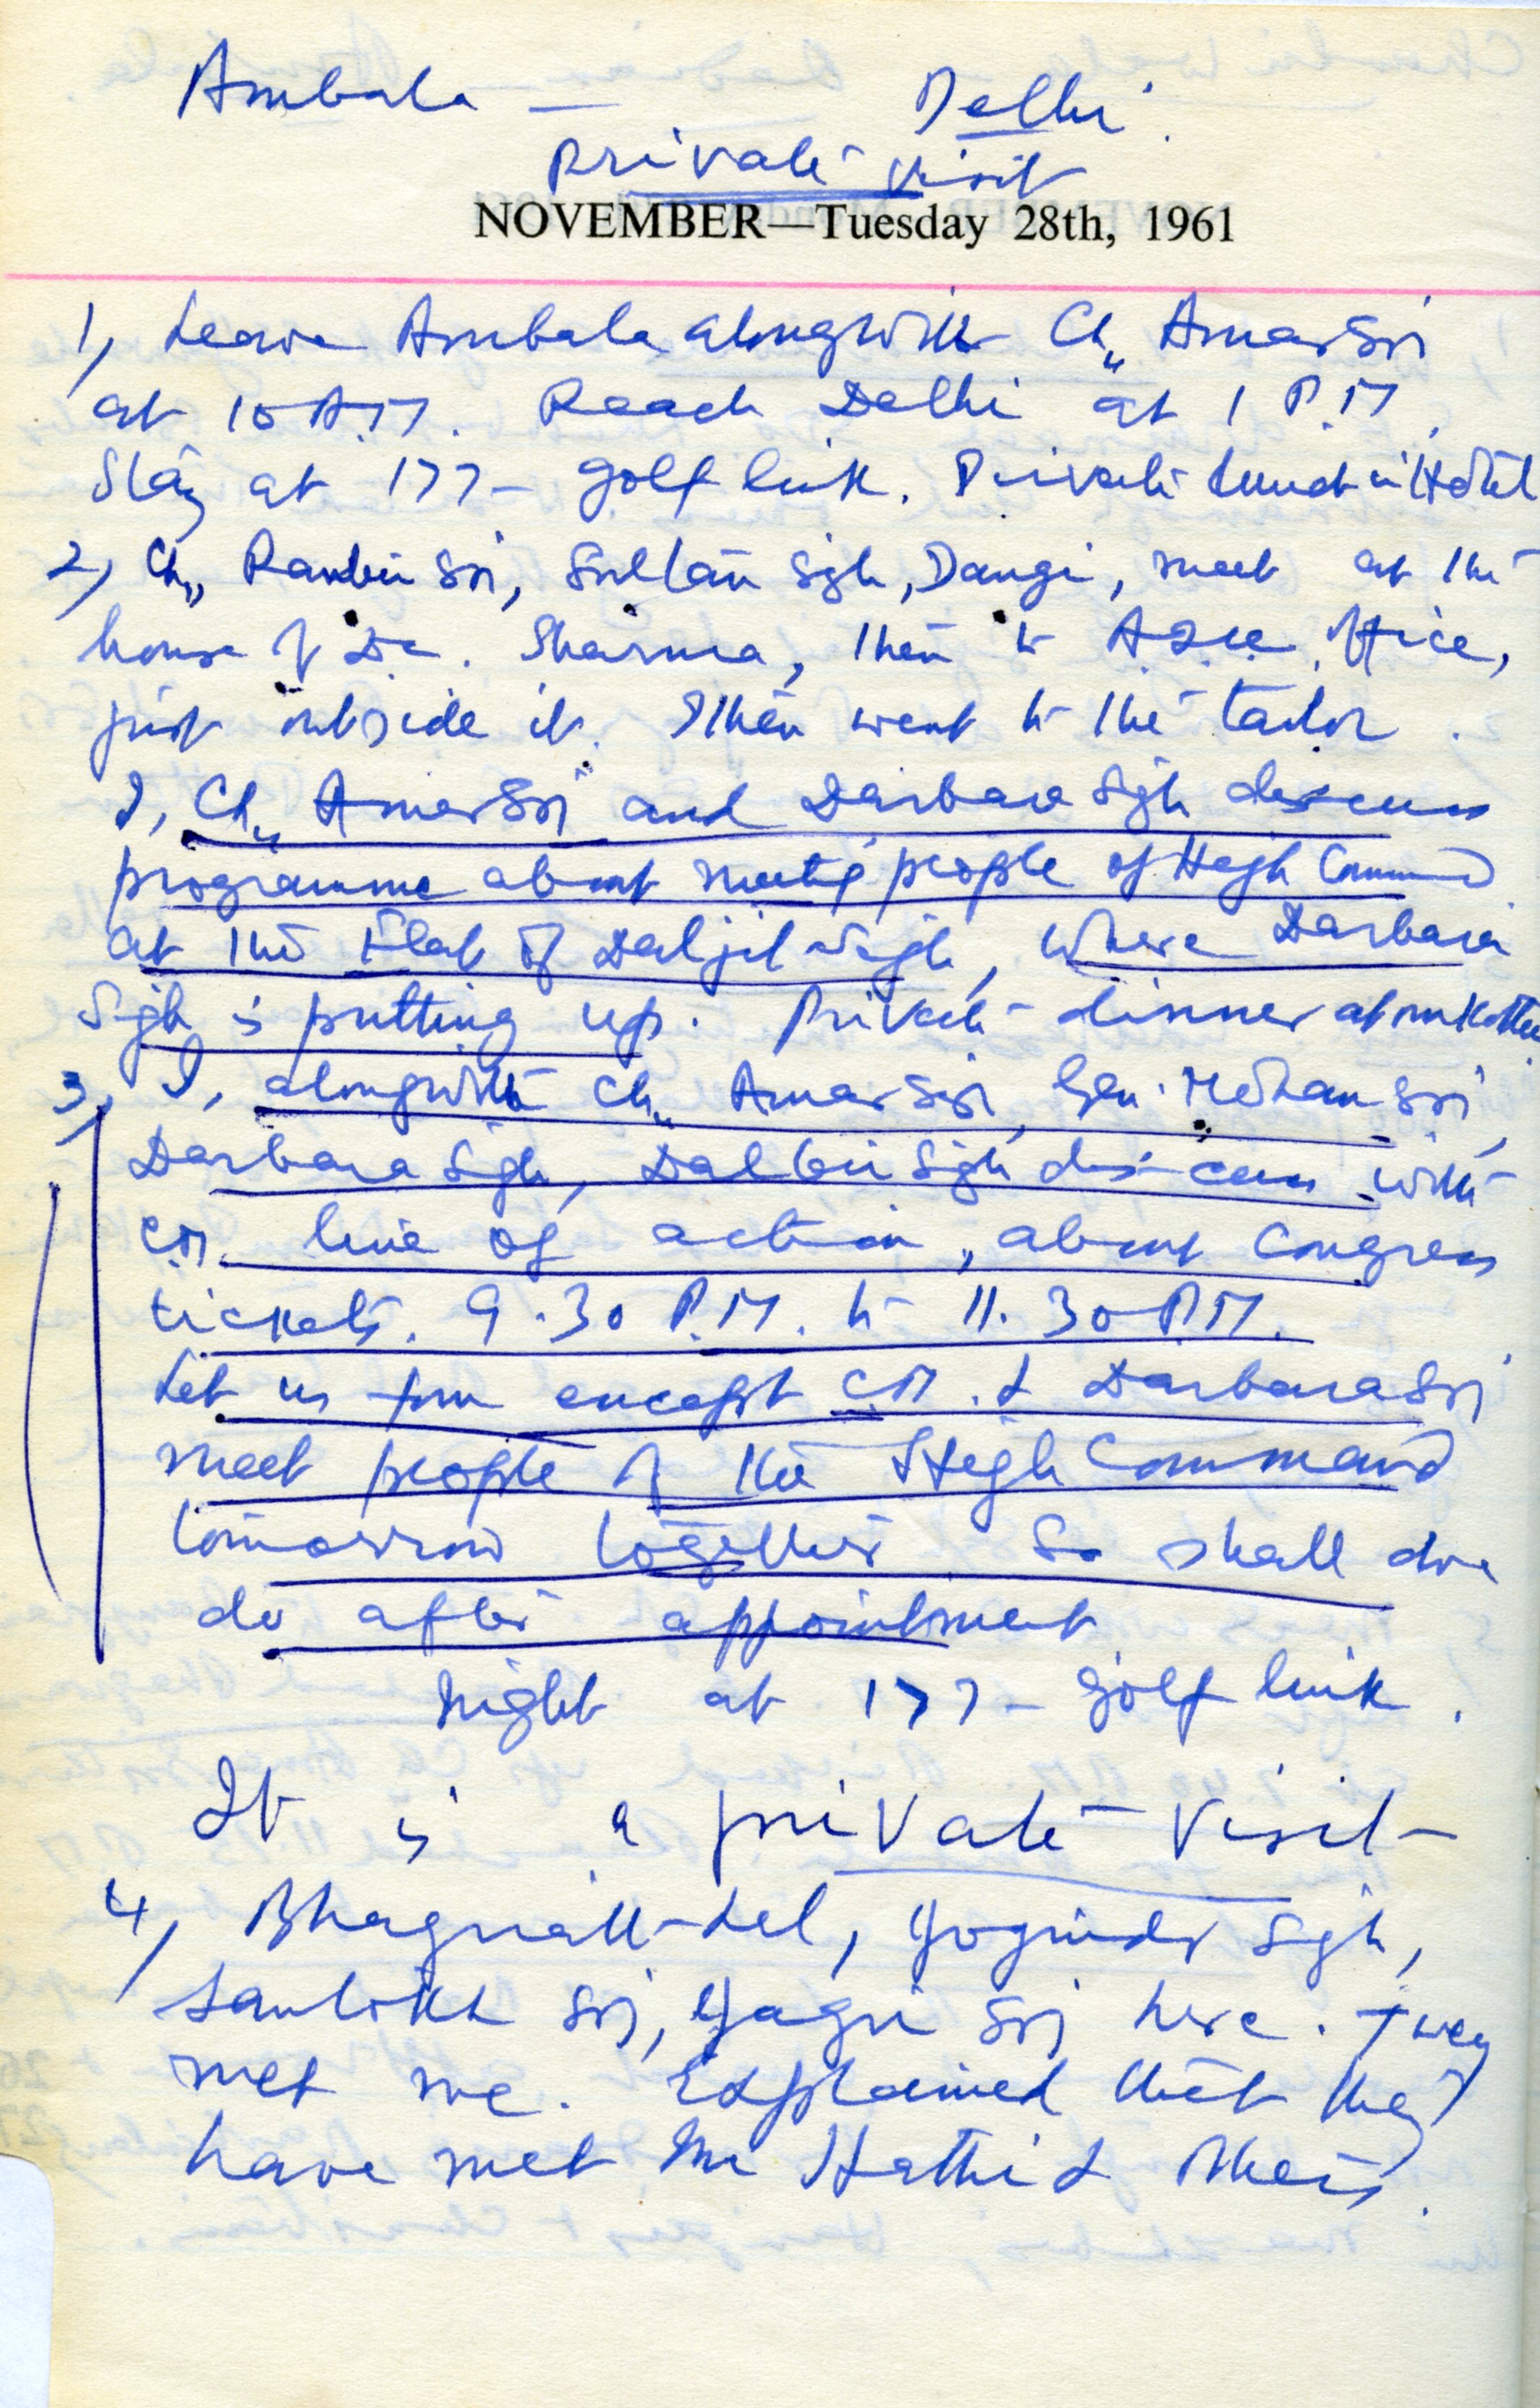 Ambala — Delhi.
Private visit
NOVEMBER—Tuesday 28th, 1961
1, Leave Ambala alongwith Ch,, Amar Sri
at 10 A.M. Reach Delhi at 1 P.M.
Stay at 177 - golf link. Private lunch in Hotel
2, Ch,, Ranbir Sri, Sultan Sigh, Dangi, meet at the
house of Dr. Sharma, then to office,
just outside it. Then went to the tailor.
I, Ch,, Amar Sri and Darbara Sigh discuss
programme about meeting people of High Command
at the Flat of Daljit Sigh, where Darbara
Sigh is putting up. Private dinner at our
3, I, alongwith Ch,, Amar Sri, Gen. Mohan Sri,
Darbara Sigh, Dalbir Sigh discuss with
CM. line of action, about Congress
tickets. 9.30 P.M. to 11.30 P.M.
Let us four except CM. & Darbara Sri
meet people of the High Command
tomorrow together. So shall we
do after appointment
Night at 177 - golf link.
It is a private visit -
4, Lal, Yoginder Sigh,
Sri, Sri here. They
met me. Explained that they
have met Mr Hathi & others.